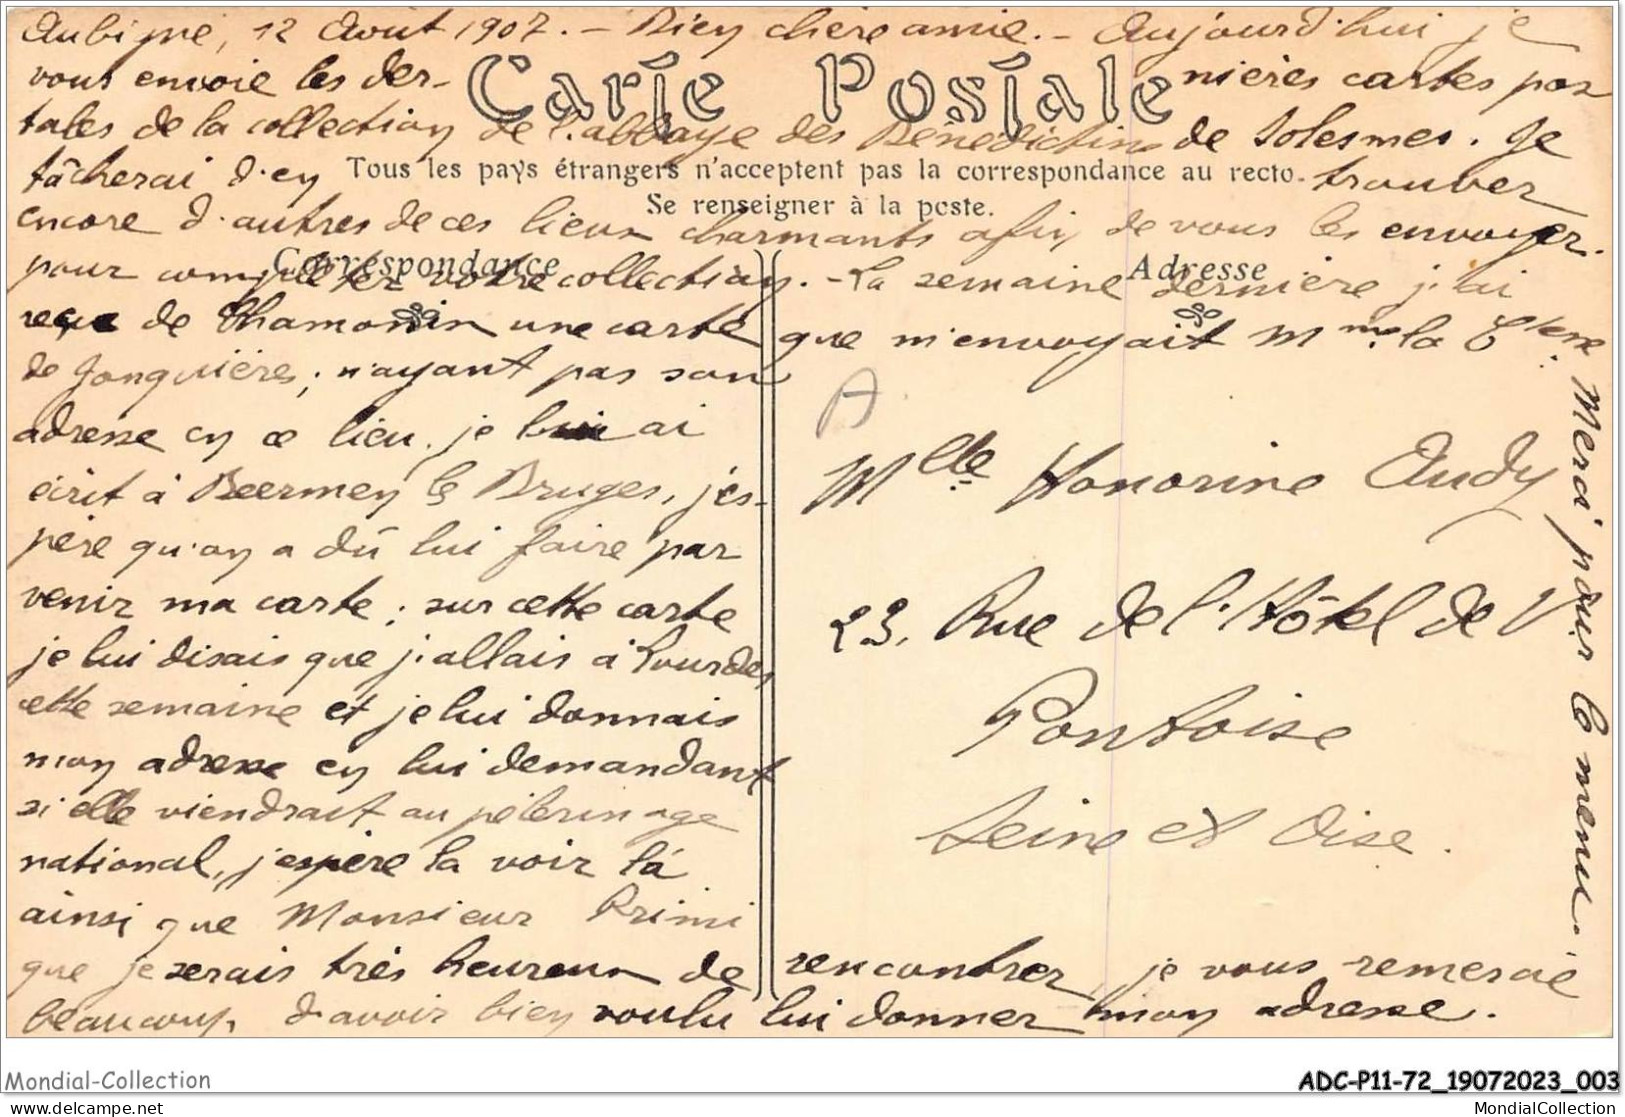 Aubigné, 12 Août 1907. – Bien chère amie. – Aujourd'hui je
vous envoie les der- nières cartes pos
Carte Postale
tales de la collection de l'abbaye des Bénédictins de Solesmes. Je
tâcherai d'en trouver
Tous les pays étrangers n'acceptent pas la correspondance au recto.
Se renseigner à la poste.
encore d'autres de ces lieux charmants afin de vous les envoyer.
Correspondance
Adresse
pour compléter votre collection. – La semaine dernière j'ai
reçu de Chamonix une carte que m'envoyait Mme la Ctesse
de Jonquières; n'ayant pas son
adresse en ce lieu, je lui ai
écrit à Beermen le Bruges, j'es-
père qu'on a dû lui faire par
venir ma carte; sur cette carte
je lui disais que j'allais à Lourdes
cette semaine et je lui donnais
mon adresse en lui demandant
si elle viendrait au pèlerinage
national, j'espère la voir là
ainsi que Monsieur Primi
que je serais très heureux de rencontrer je vous remercie
beaucoup d'avoir bien voulu lui donner mon adresse.
A
Mlle Honorine Audy
23. Rue de l'Hôtel de V
Pontoise
Seine et Oise.
Merci pour le menu.
Mondial-Collection
ADC-P11-72_19072023_003
delcampe.net
MondialCollection